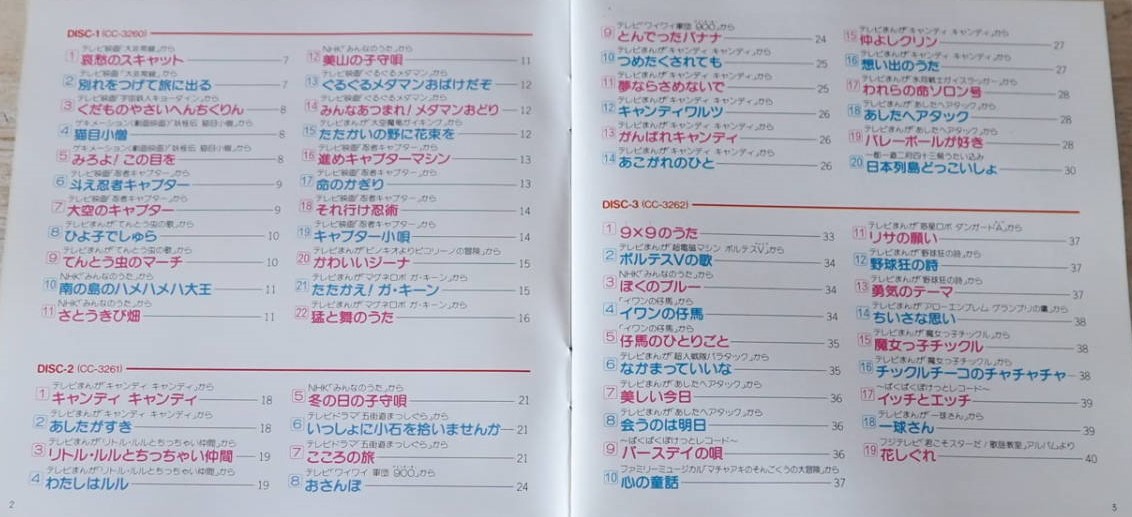 DISC-1 (CC-3260)
テレビ映画「大非常線」から
1 哀愁のスキャット 7
テレビ映画「大非常線」から
2 別れをつげて旅に出る 7
テレビ映画「宇宙鉄人キョーダイン」から
3 くだものやさいへんちくりん 8
ゲキメーション(劇画映画)「妖怪伝 猫目小僧」から
4 猫目小僧 8
ゲキメーション(劇画映画)「妖怪伝 猫目小僧」から
5 みろよ!この目を 8
テレビ映画「忍者キャプター」から
6 斗え忍者キャプター 9
テレビ映画「忍者キャプター」から
7 大空のキャプター 9
テレビまんが「てんとう虫の歌」から
8 ひよ子でしゅら 10
テレビまんが「てんとう虫の歌」から
9 てんとう虫のマーチ 10
NHK「みんなのうた」から
10 南の島のハメハメハ大王 11
NHK「みんなのうた」から
11 さとうきび畑 11
NHK「みんなのうた」から
12 美山の子守唄 11
テレビ映画「ぐるぐるメダマン」から
13 ぐるぐるメダマンおばけだぞ 12
テレビ映画「ぐるぐるメダマン」から
14 みんなあつまれ!メダマンおどり 12
テレビまんが「大空魔竜ガイキング」から
15 たたかいの野に花束を 12
テレビ映画「忍者キャプター」から
16 進めキャプターマシン 13
テレビ映画「忍者キャプター」から
17 命のかぎり 13
テレビ映画「忍者キャプター」から
18 それ行け忍術 14
テレビ映画「忍者キャプター」から
19 キャプター小唄 14
テレビまんが「ピノキオよりピコリーノの冒険」から
20 かわいいジーナ 15
テレビまんが「マグネロボ ガ・キーン」から
21 たたかえ!ガ・キーン 15
テレビまんが「マグネロボ ガ・キーン」から
22 猛と舞のうた 16
DISC-2 (CC-3261)
テレビまんが「キャンディ キャンディ」から
1 キャンディ キャンディ 18
テレビまんが「キャンディ キャンディ」から
2 あしたがすき 18
テレビまんが「リトル・ルルとちっちゃい仲間」から
3 リトル・ルルとちっちゃい仲間 19
テレビまんが「リトル・ルルとちっちゃい仲間」から
4 わたしはルル 19
NHK「みんなのうた」から
5 冬の日の子守唄 21
テレビドラマ「五街道まっしぐら」から
6 いっしょに小石を拾いませんか 21
テレビドラマ「五街道まっしぐら」から
7 こころの旅 21
テレビ「ワイワイ軍団 900」から
8 おさんぽ 24
2
テレビ「ワイワイ軍団 900」から
9 とんでったバナナ 24
テレビまんが「キャンディ キャンディ」から
10 つめたくされても 25
テレビまんが「キャンディ キャンディ」から
11 夢ならさめないで 25
テレビまんが「キャンディ キャンディ」から
12 キャンディワルツ 26
テレビまんが「キャンディ キャンディ」から
13 がんばれキャンディ 26
テレビまんが「キャンディ キャンディ」から
14 あこがれのひと 26
テレビまんが「キャンディ キャンディ」から
15 仲よしクリン 27
テレビまんが「キャンディ キャンディ」から
16 想い出のうた 27
テレビまんが「氷河戦士ガイスラッガー」から
17 われらの命ソロン号 28
テレビまんが「あしたへアタック」から
18 あしたへアタック 28
テレビまんが「あしたへアタック」から
19 バレーボールが好き 28
一都一道二府四十三県うたい込み
20 日本列島どっこいしょ 30
DISC-3 (CC-3262)
1 9×9のうた 33
テレビまんが「超電磁マシン ボルテスV」から
2 ボルテスVの歌 34
NHK「みんなのうた」から
3 ぼくのブルー 34
「イワンの仔馬」から
4 イワンの仔馬 34
「イワンの仔馬」から
5 仔馬のひとりごと 35
テレビまんが「超人戦隊バラタック」から
6 なかまっていいな 35
テレビまんが「あしたへアタック」から
7 美しい今日 36
テレビまんが「あしたへアタック」から
8 会うのは明日 36
～ぱくぱくぽけっとレコード～
9 バースデイの唄 36
ファミリーミュージカル「マチャアキのそんごくうの大冒険」から
10 心の童話 37
テレビまんが「惑星ロボ ダンガードA」から
11 リサの願い 37
テレビまんが「野球狂の詩」から
12 野球狂の詩 37
テレビまんが「野球狂の詩」から
13 勇気のテーマ 37
テレビまんが「アローエンブレム グランプリの鷹」から
14 ちいさな思い 38
テレビまんが「魔女っ子チックル」から
15 魔女っ子チックル 38
テレビまんが「魔女っ子チックル」から
16 チックルチーコのチャチャチャ 38
～ぱくぱくぽけっとレコード～
17 イッチとエッチ 39
テレビまんが「一球さん」から
18 一球さん 39
フジテレビ「君こそスターだ/歌謡教室」アルバムより
19 花しぐれ 40